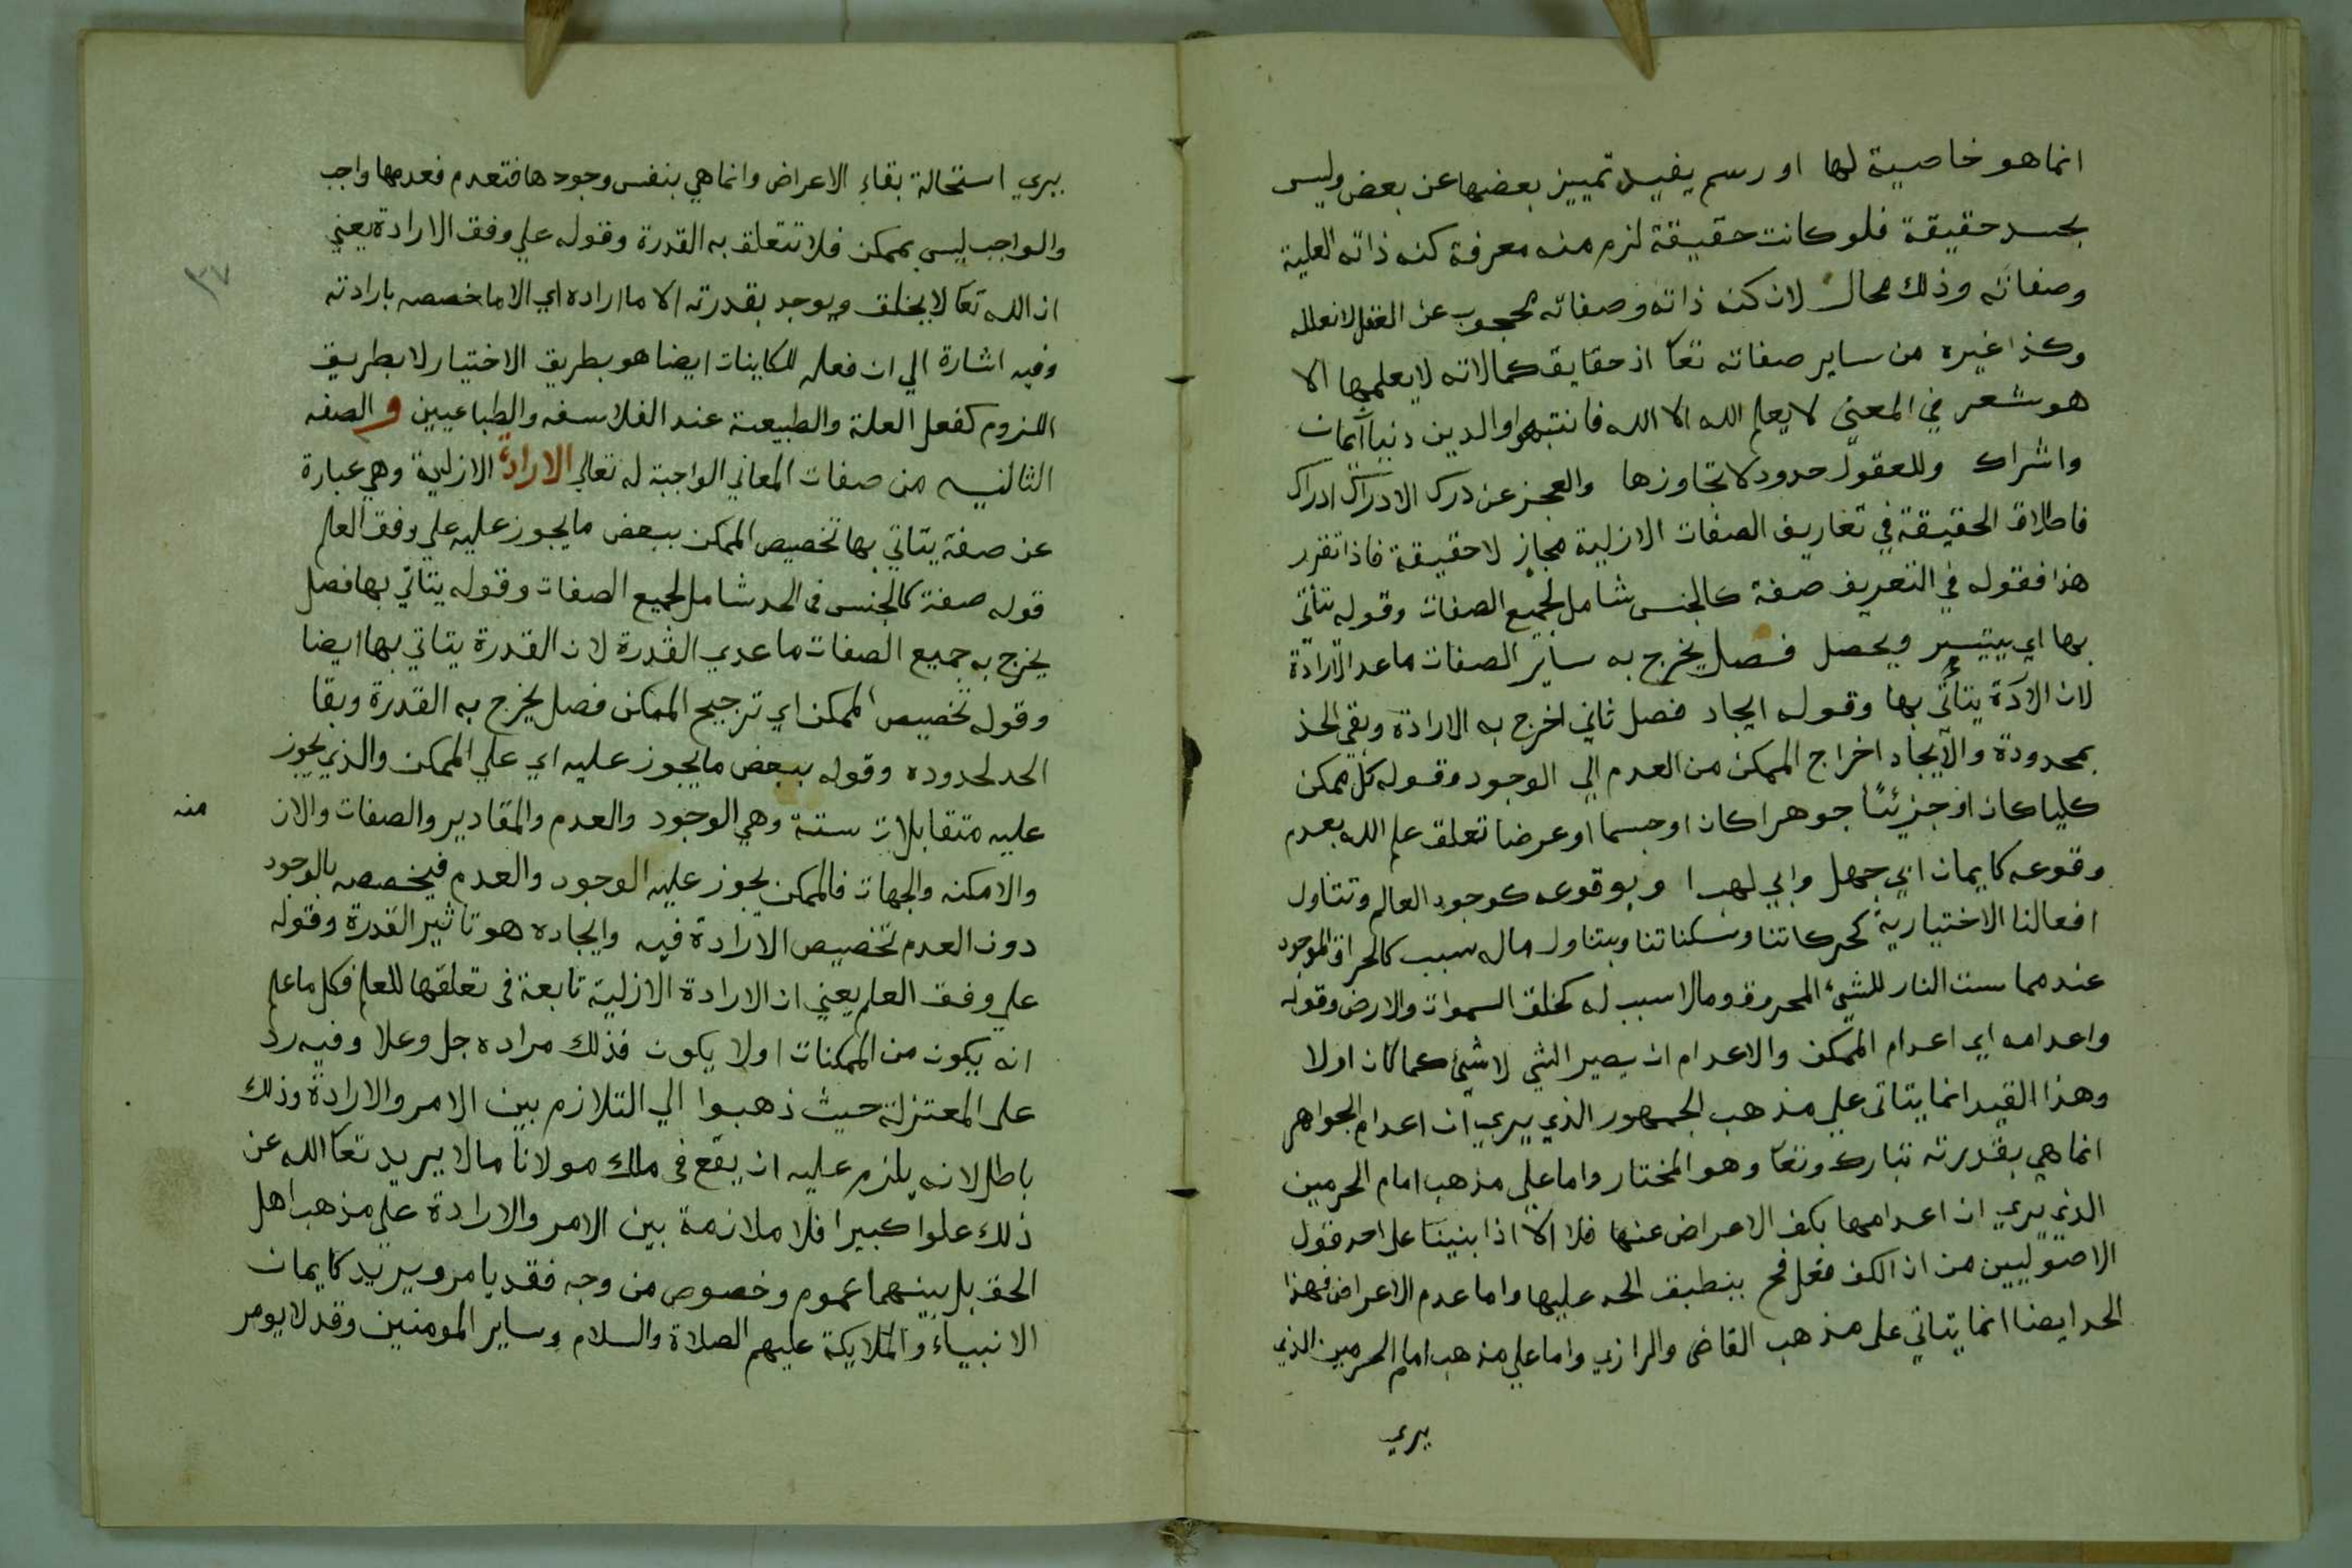 انما هو خاصية لها او رسم يفيد تمييز بعضها عن بعض وليس
بحسد حقيقة فلو كانت حقيقة لزم منه معرفة كنه ذاته العلية
وصفاته وذلك محال لان كنه ذاته وصفاته محجوب عن العقل لا نعلمه
وكذا غيره من ساير صفاته تعا اذ حقايق كمالاته لا يعلمها الا
هو شعر في المعني لا يعلم الله الا الله فانتبهوا والدين دنيا ايمان
واشراك وللعقول حدود لا تجاوزها والعجز عن درك الادراك ادراك
فاطلاق الحقيقة في تعاريف الصفات الازلية مجاز لا حقيقة فاذا تقرر
هذا فقوله في التعريف صفة كالجنس شامل لجميع الصفات وقوله يتأتى
بها اي يتيسر ويحصل فصل يخرج به ساير الصفات ماعدا الارادة
لان الارادة يتأتى بها وقوله ايجاد فصل ثاني اخرج به الارادة وبقي الحد
بمحدودة والايجاد اخراج الممكن من العدم الي الوجود وقوله كل ممكن
كليا كان او جزئيا جوهرا كان او جسما او عرضا تعلق علم الله بعدم
وقوعه كايمان ابي جهل وابي لهب ا و بوقوعه كوجود العالم وتتناول
افعالنا الاختيارية كحركاتنا وسكناتنا ويتناول ماله سبب كالحراق الموجود
عند مماست النار للشئ المحروق ومالا سبب له كخلق السموات والارض وقوله
واعدامه اي اعدام الممكن والاعدام ان يصير الشي لا شئ كما كان اولا
وهذا القيد انما يتاتى علي مذهب الجمهور الذي يري ان اعدام الجواهر
انما هي بقدرته تبارك وتعا وهو المختار واما علي مذهب امام الحرمين
الذي يري ان اعدامها بكف الاعراض عنها فلا الا اذا بنينا على احد قول
الاصوليين من ان الكف فعل فح ينطبق الحد عليها واما عدم الاعراض فهذا
الحد ايضا انما يتاتي على مذهب القاضى والرازي واما علي مذهب امام الحرمين الذي
يري
يري استحالة بقاء الاعراض وانما هي بنفس وجودها فتعدم فعدمها واجب
والواجب ليس بممكن فلا تتعلق به القدرة وقوله علي وفق الارادة يعني
ان الله تعا لا يخلق ويوجد بقدرته الا ما اراده اي الا ما خصصه بارادته
وفيه اشارة الي ان فعله للكاينات ايضا هو بطريق الاختيار لا بطريق
اللزوم كفعل العلة والطبيعة عند الفلاسفه والطباعيين و الصفه
الثانيه من صفات المعاني الواجبة له تعالي الارادة الازلية وهي عبارة
عن صفة يتاتي بها تخصيص الممكن ببعض ما يجوز عليه علي وفق العلم
قوله صفة كالجنس فى الحد شامل لجميع الصفات وقوله يتاتي بها فصل
يخرج به جميع الصفات ما عدي القدرة لان القدرة يتاتي بها ايضا
وقوله تخصيص الممكن اي ترجيح الممكن فصل يخرج به القدرة وبقا
الحد لمحدوده وقوله ببعض ما يجوز عليه اي علي الممكن والذي يجوز
عليه متقابلات ستة وهي الوجود والعدم والمقادير والصفات والازن
منه
والامكنه والجهات فالممكن يجوز عليه الوجود والعدم فيخصصه بالوجود
دون العدم تخصيص الارادة فيه وايجاده هو تاثير القدرة وقوله
علي وفق العلم يعني ان الارادة الازلية تابعة فى تعلقها للعلم فكل ما علم
انه يكون من الممكنات اولا يكون فذلك مراده جل وعلا وفيه رد
على المعتزلة حيث ذهبوا الي التلازم بين الامر والارادة وذلك
باطل لانه يلزم عليه ان يقع فى ملك مولانا مالا يريد تعا الله عن
ذلك علوا كبيرا فلا ملازمة بين الامر والارادة علي مذهب اهل
الحق بل بينهما عموم وخصوص من وجه فقد يامر ويريد كايمان
الانبياء والملايكة عليهم الصلاة والسلام وساير المومنين وقد لا يومر
٣٧